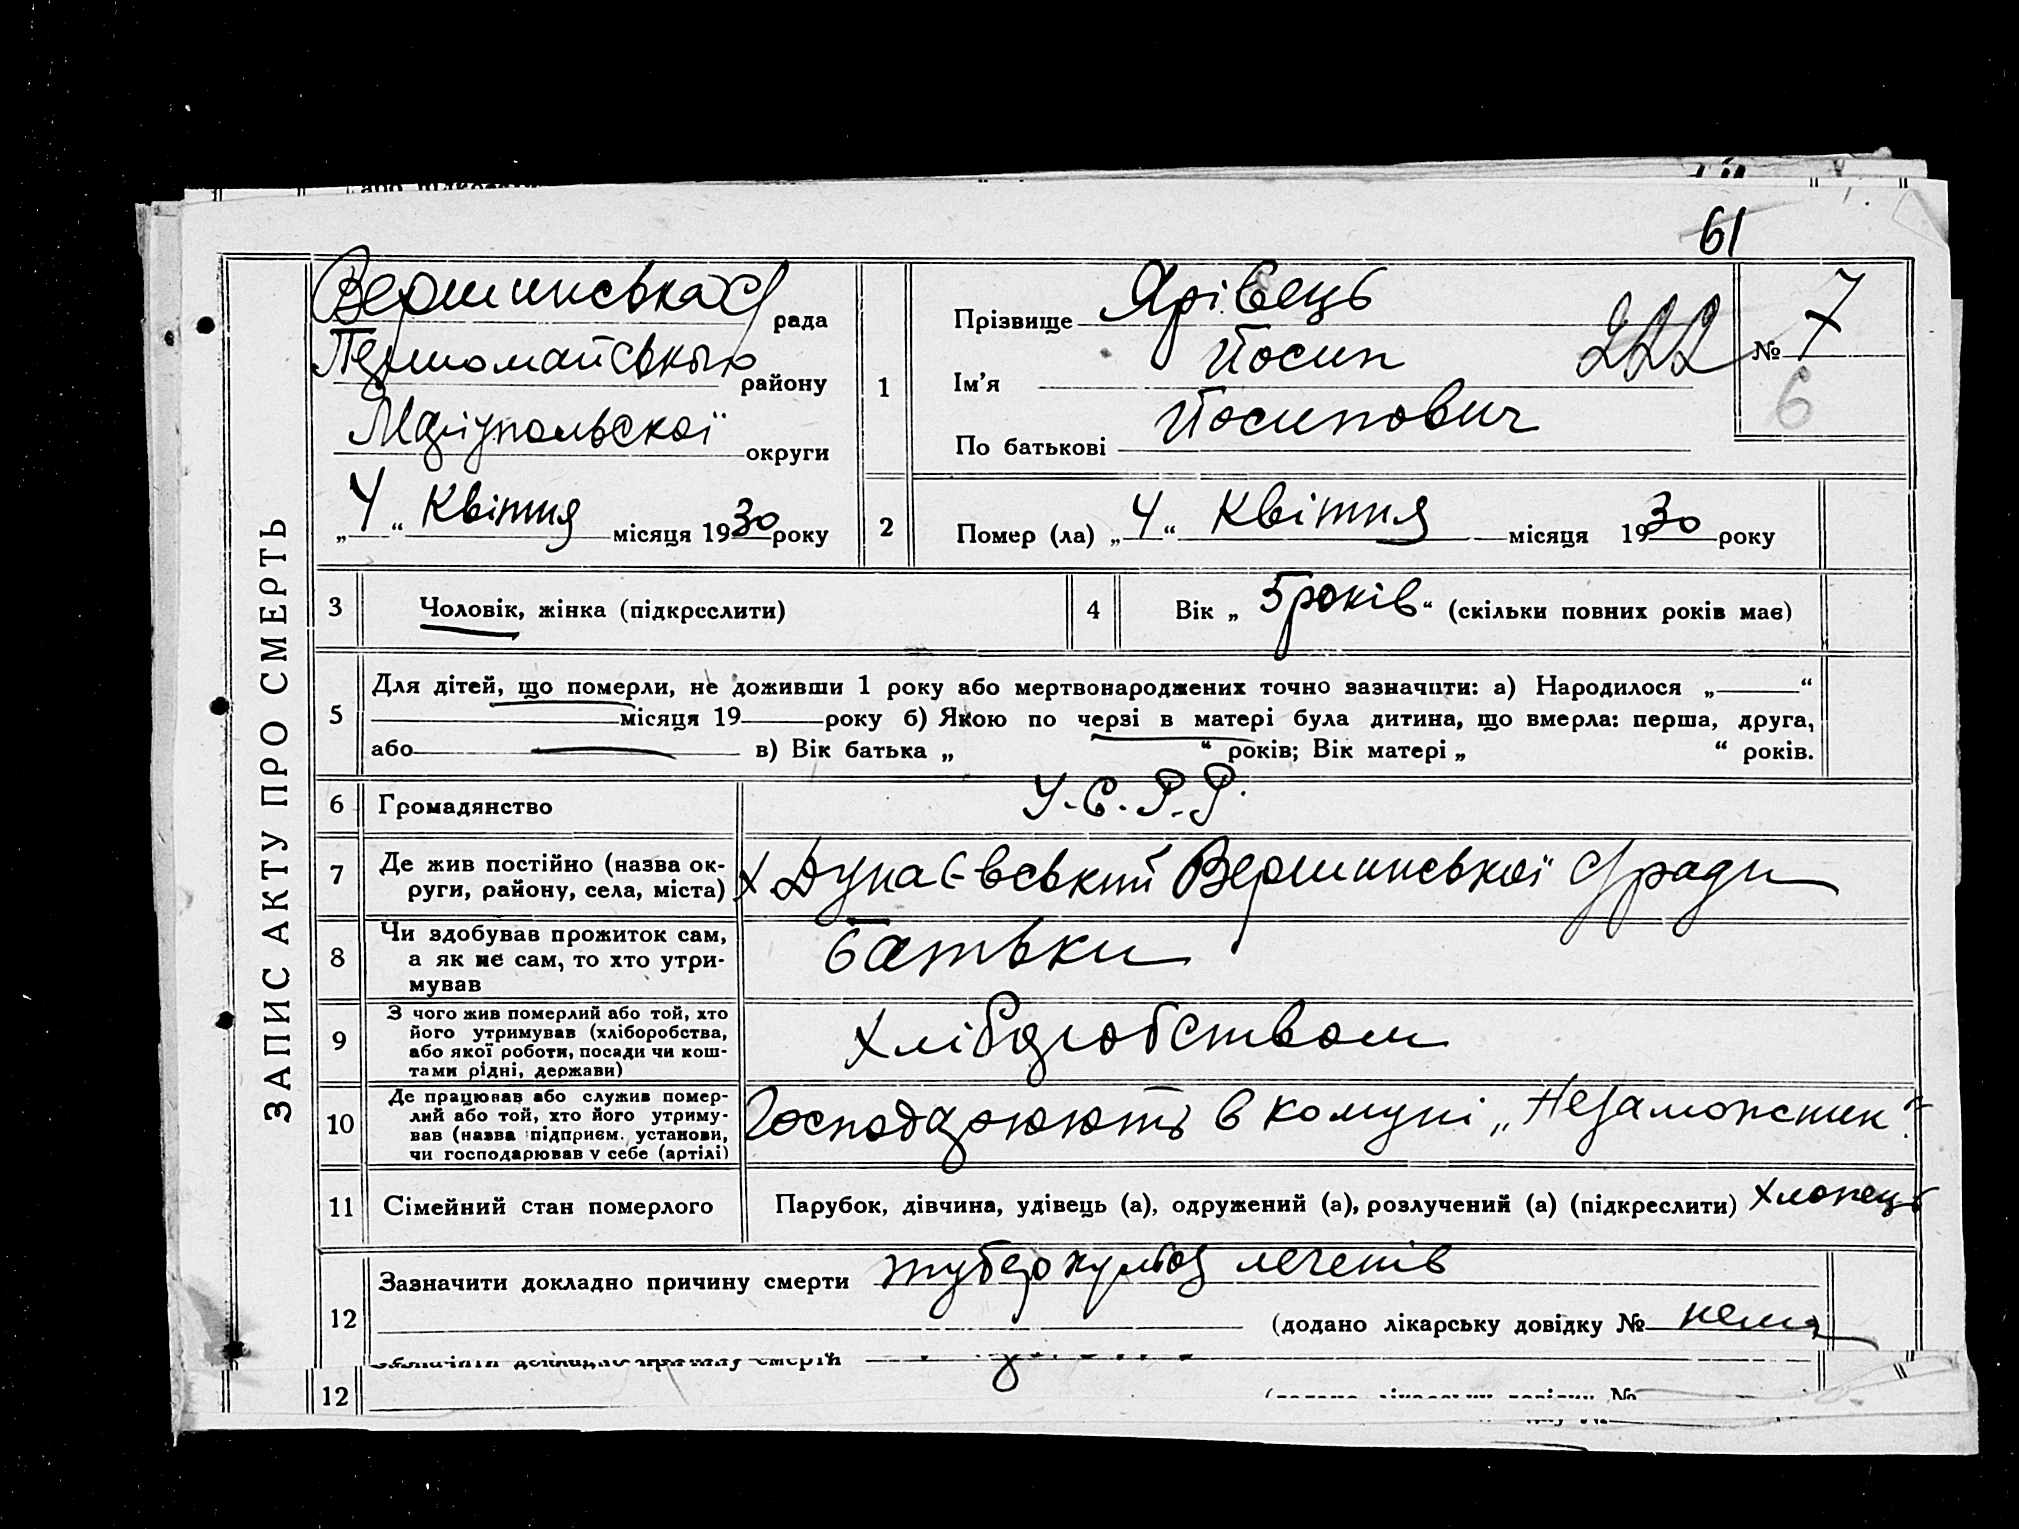 61
ЗАПИС АКТУ ПРО СМЕРТЬ
Вершинська С/ рада
Першомайського району
Маріупольскої округи
„4“ Квітня місяця 1930 року
1
Прізвище Ярівець
Ім’я Йосип
По батькові Йосипович
222
№ 7
6
2
Помер (ла) „4“ Квітня місяця 1930 року
3 Чоловік, жінка (підкреслити)
4 Вік „5 років“ (скільки повних років має)
5 Для дітей, що померли, не доживши 1 року або мертвонароджених точно зазначити: а) Народилося „ “
місяця 19 року б) Якою по черзі в матері була дитина, що вмерла: перша, друга,
або — в) Вік батька „ “ років; Вік матері „ “ років.
6 Громадянство У.С.Р.Р.
7 Де жив постійно (назва ок-
руги, району, села, міста)
х Дунаєвський Вершинської С/ради
8 Чи здобував прожиток сам,
а як не сам, то хто утри-
мував
батьки
9 З чого жив померлий або той, хто
його утримував (хліборобства,
або якої роботи, посади чи кош-
тами рідні, держави)
Хліборобством
10 Де працював або служив помер-
лий або той, хто його утриму-
вав (назва підприєм. установи,
чи господарював у себе (артілі)
Господарюють в комуні „Незаможник“
11 Сімейний стан померлого
Парубок, дівчина, удівець (а), одружений (а), розлучений (а) (підкреслити) хлопець
12 Зазначити докладно причину смерти туберкульоз легенів
(додано лікарську довідку № нема
Зазначити докладно причину смерти
12